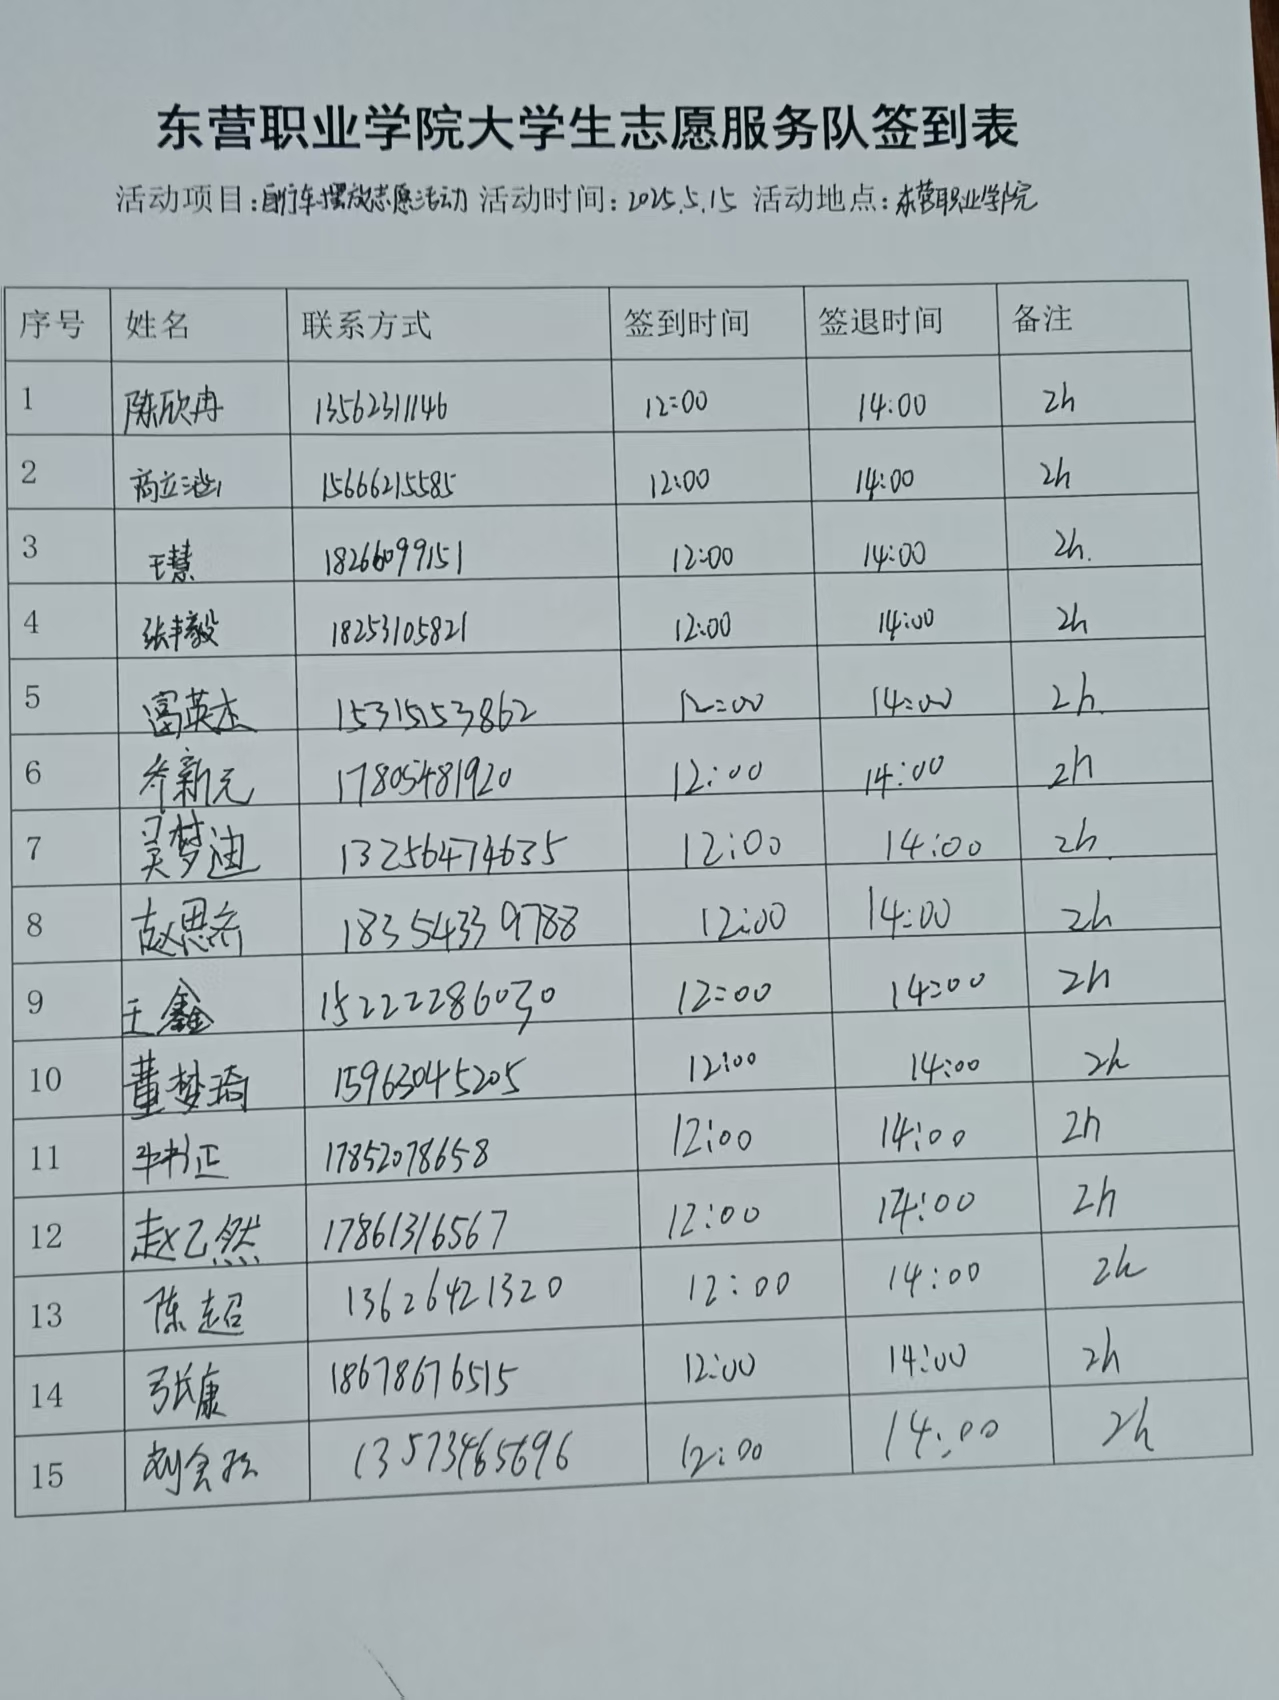 东营职业学院大学生志愿服务队签到表
活动项目:自行车摆放志愿活动 活动时间: 2025.5.15 活动地点: 东营职业学院
序号 姓名 联系方式 签到时间 签退时间 备注
1 陈欣冉 13562311146 12:00 14:00 2h
2 15666215585 12:00 14:00 2h
3 王慧 18266099151 12:00 14:00 2h.
4 张丰毅 18253105821 12:00 14:00 2h
5 富英杰 15315153862 12:00 14:00 2h.
6 17805481920 12:00 14:00 2h
7 吴梦迪 13256474635 12:00 14:00 2h.
8 赵思齐 18354339788 12:00 14:00 2h
9 王鑫 15222286030 12:00 14:00 2h
10 董梦琦 15963045205 12:00 14:00 2h
11 17852078658 12:00 14:00 2h
12 赵乙然 17861316567 12:00 14:00 2h
13 陈超 13626421320 12:00 14:00 2h
14 张康 18678676515 12:00 14:00 2h
15 13573465696 12:00 14:00 2h